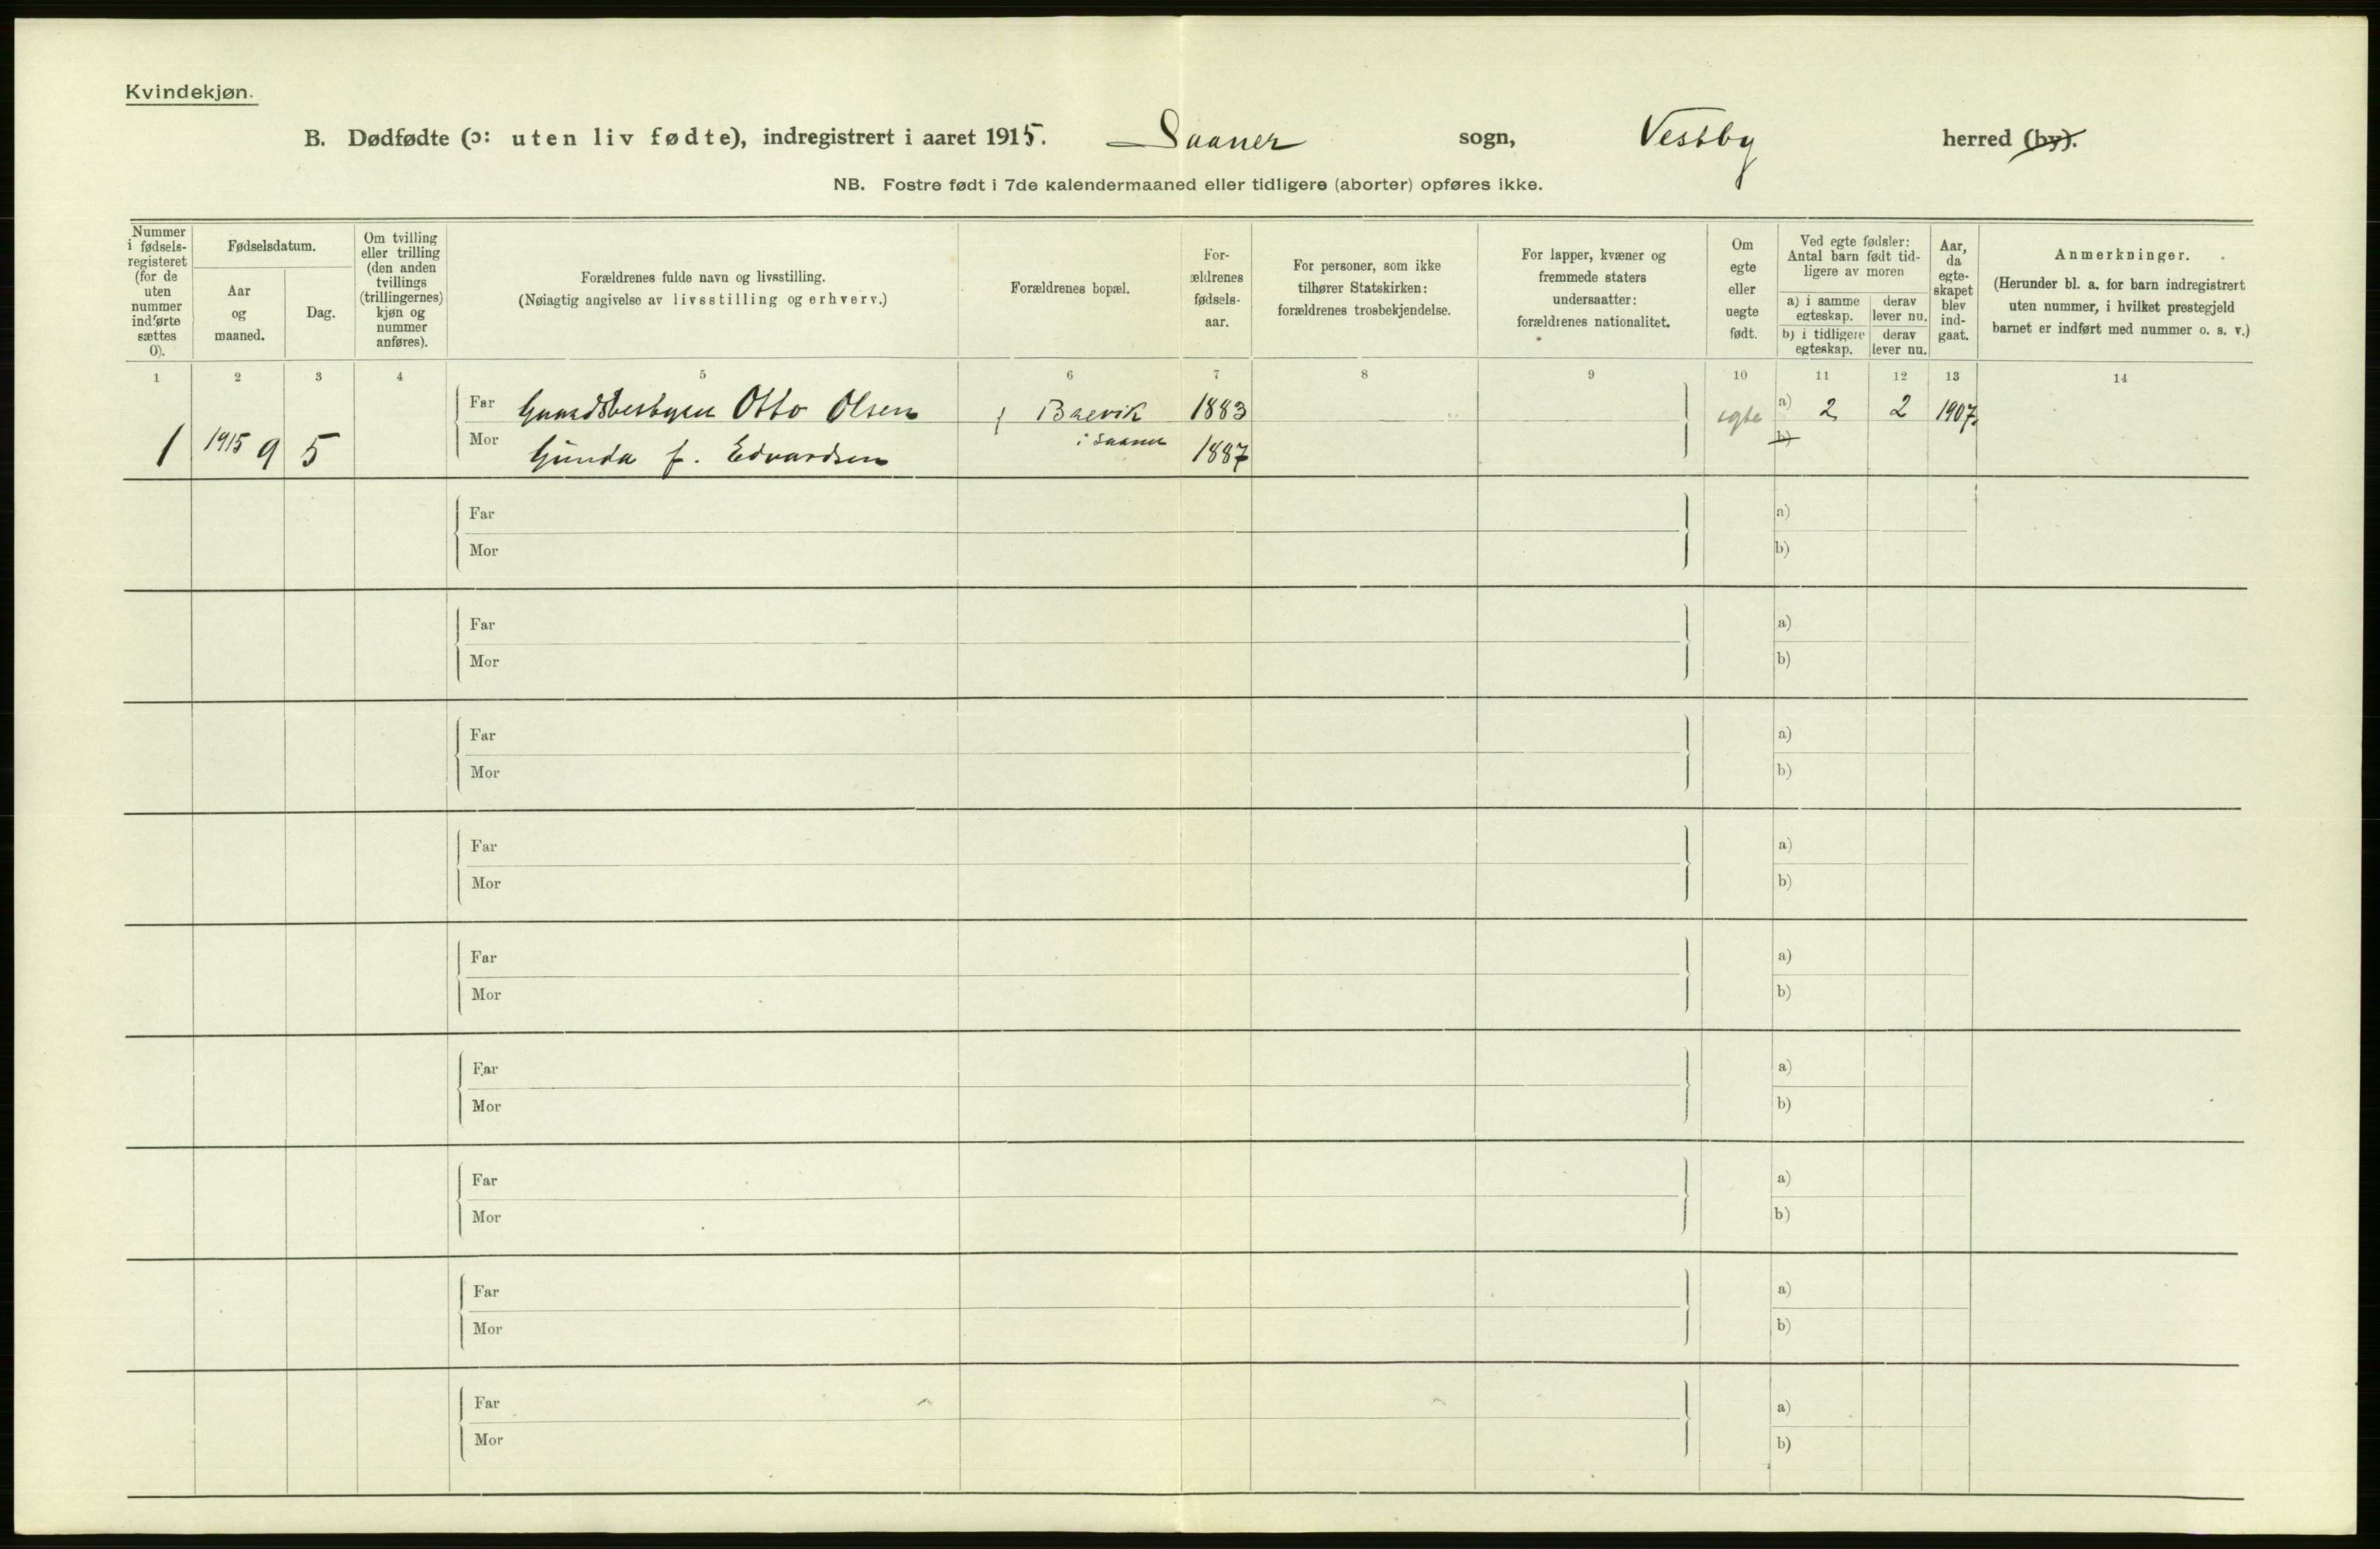 Kvindekjøn.
B. Dødfødte (ɔ: uten liv fødte), indregistrert i aaret 1915. Saaner sogn, Vestby herred (by).
NB. Fostre født i 7de kalendermaaned eller tidligere (aborter) opføres ikke.
Nummer
i fødsels-
registeret
(for de
uten
nummer
indførte
sættes
0).
Fødselsdatum.
Aar
og
maaned.
Dag.
Om tvilling
eller trilling
(den anden
tvillings
(trillingernes)
kjøn og
nummer
anføres).
Forældrenes fulde navn og livsstilling.
(Nøiagtig angivelse av livsstilling og erhverv.)
Forældrenes bopæl.
For-
ældrenes
fødsels-
aar.
For personer, som ikke
tilhører Statskirken:
forældrenes trosbekjendelse.
For lapper, kvæner og
fremmede staters
undersaatter:
forældrenes nationalitet.
Om
egte
eller
uegte
født.
Ved egte fødsler:
Antal barn født tid-
ligere av moren
a) i samme
egteskap.
derav
lever nu.
b) i tidligere
egteskap.
derav
lever nu.
Aar,
da
egte-
skapet
blev
ind-
gaat.
Anmerkninger.
(Herunder bl. a. for barn indregistrert
uten nummer, i hvilket prestegjeld
barnet er indført med nummer o. s. v.)
1 2 3 4 5 6 7 8 9 10 11 12 13 14
Far Gaardsbestyrer Otto Olsen Brevik 1883 egte a) 2 2 1907
1 1915 9 5 Mor Gunda f. Edvardsen i Saaner 1887 b)
Far a)
Mor b)
Far a)
Mor b)
Far a)
Mor b)
Far a)
Mor b)
Far a)
Mor b)
Far a)
Mor b)
Far a)
Mor b)
Far a)
Mor b)
Far a)
Mor b)